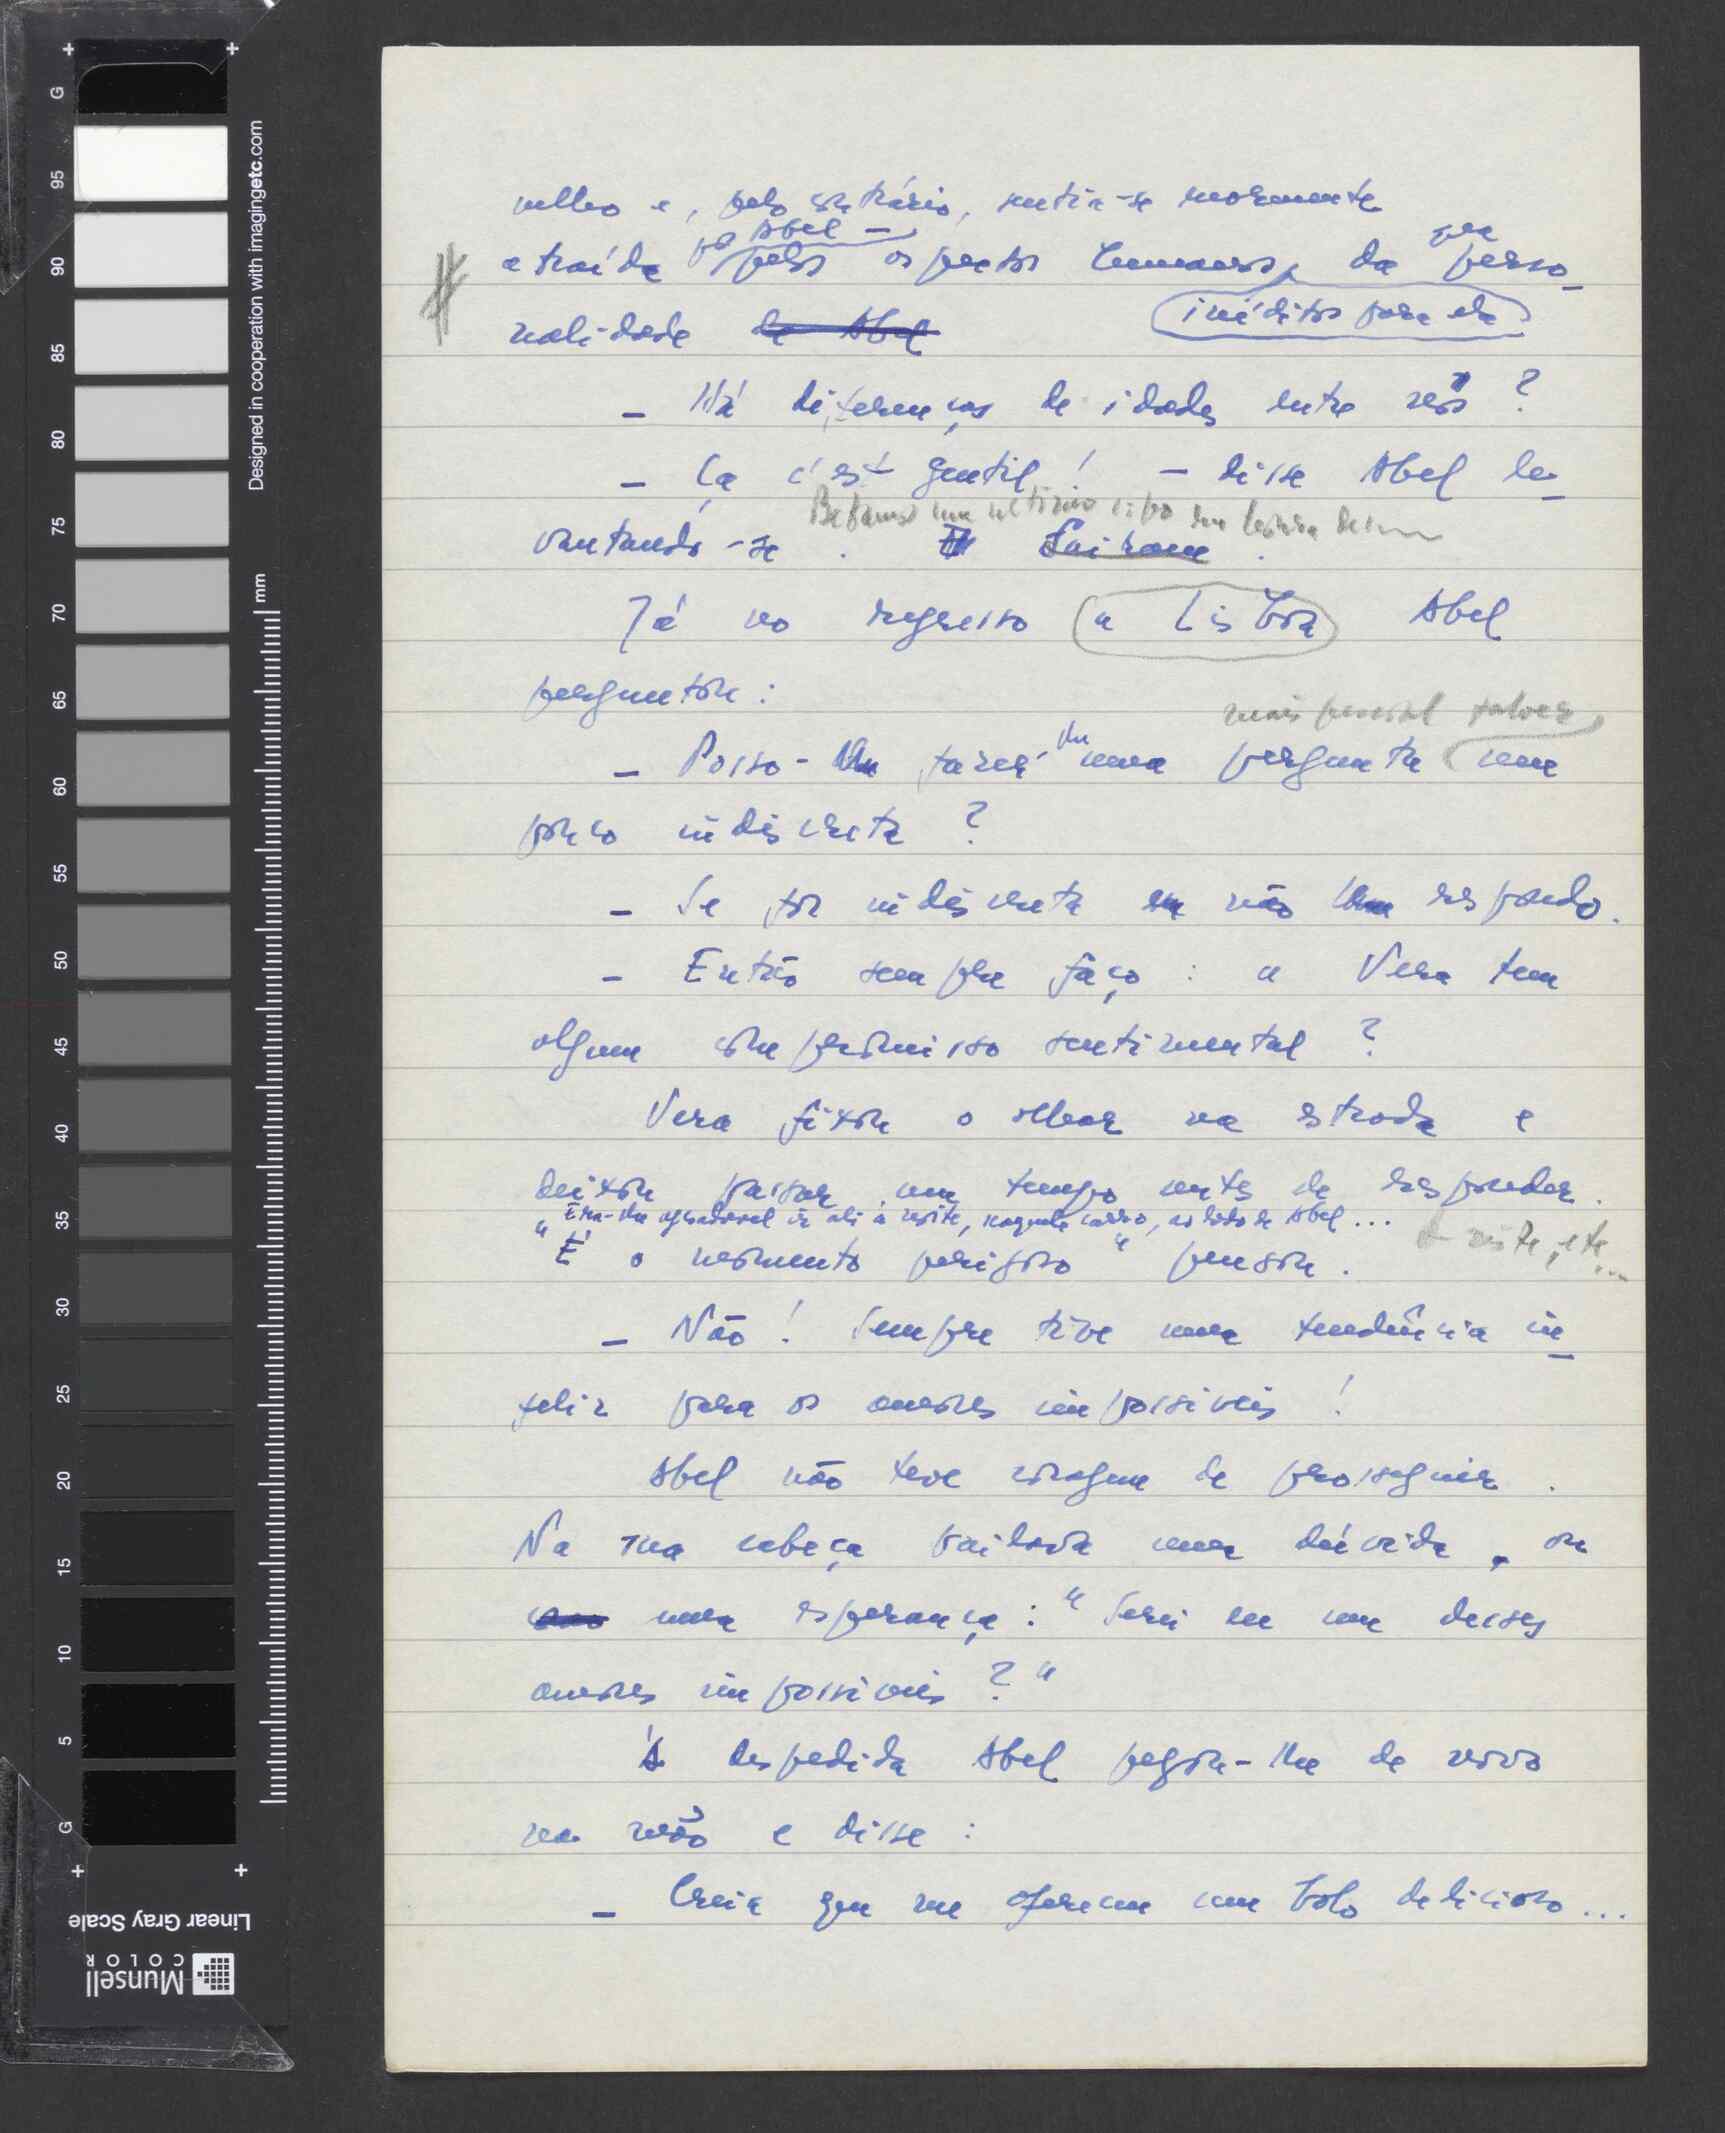 velho e, pelo contrário, sentia-se enormemente
por Abel –
atraída pelos aspectos humanos, da sua perso-
inéditos para ela
nalidade de Abel
– Há diferenças de idades entre nós?
– Ça c'est gentil! – disse Abel le-
Bebamos um último copo em honra
vantando-se. Sairam.
Já no regresso a Lisboa Abel
perguntou:
mais pessoal talvez,
– Posso-lhe fazer-lhe uma pergunta um
pouco indiscreta?
– Se for indiscreta eu não lhe respondo.
– Então sempre faço: a Vera tem
algum compromisso sentimental?
Vera fixou o olhar na estrada e
deixou passar um tempo antes de responder.
Era-lhe agradável ir ali à noite, naquele carro, ao lado de Abel...
à noite, etc...
"É o momento perigoso" pensou.
– Não! Sempre tive uma tendência in-
feliz para os amores impossíveis!
Abel não teve coragem de prosseguir.
Na sua cabeça bailava uma dúvida, ou
uma esperança: "Serei eu um desses
amores impossíveis?"
À despedida Abel pegou-lhe de novo
na mão e disse:
– Creia que me ofereceu um bolo delicioso...
Designed in cooperation with imagingetc.com
mm
G
95
90
85
80
75
70
65
60
55
50
45
40
35
30
25
20
15
10
5
G
Linear Gray Scale
Munsell
COLOR